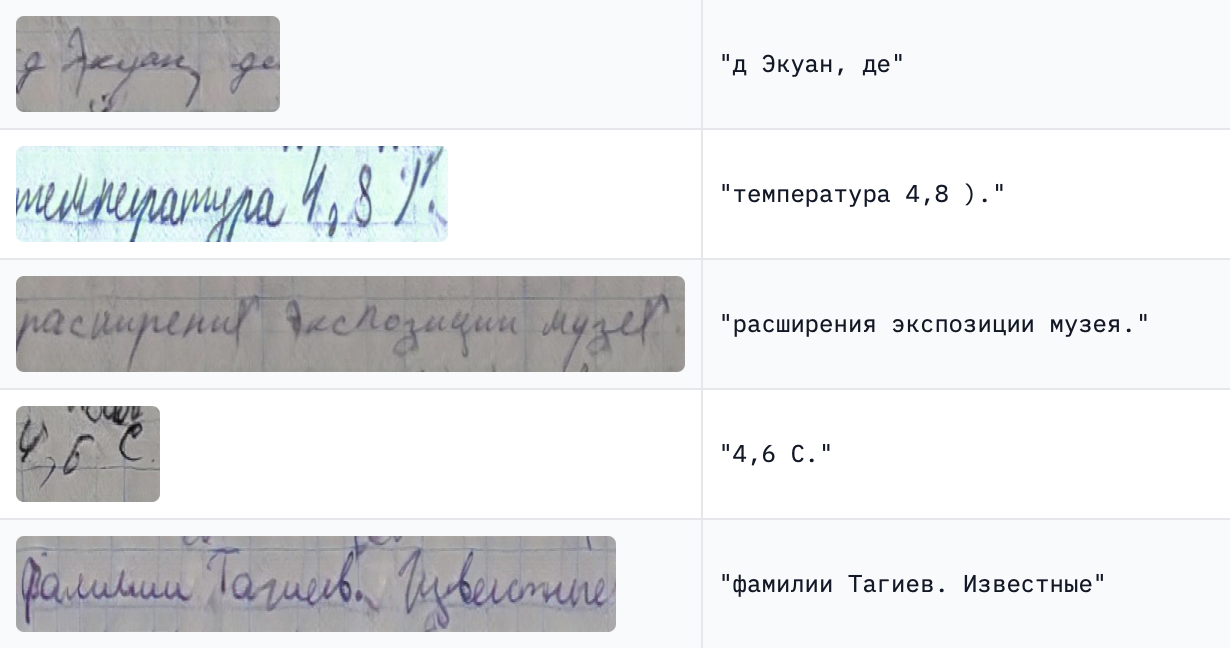 д Экуан, де "д Экуан, де"
температура 4,8 ). "температура 4,8 )."
расширения экспозиции музея. "расширения экспозиции музея."
4,6 С. "4,6 С."
фамилии Тагиев. Известные "фамилии Тагиев. Известные"